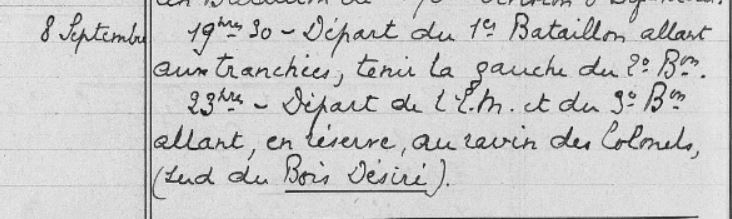 8 Septembre
19hres 30 - Départ du 1er Bataillon allant
aux tranchées, tenir la gauche du 2e Bon.
23hres - Départ de l'E.M. et du 3e Bon
allant, en réserve, au ravin des Colonels,
(Sud du Bois Désiré).